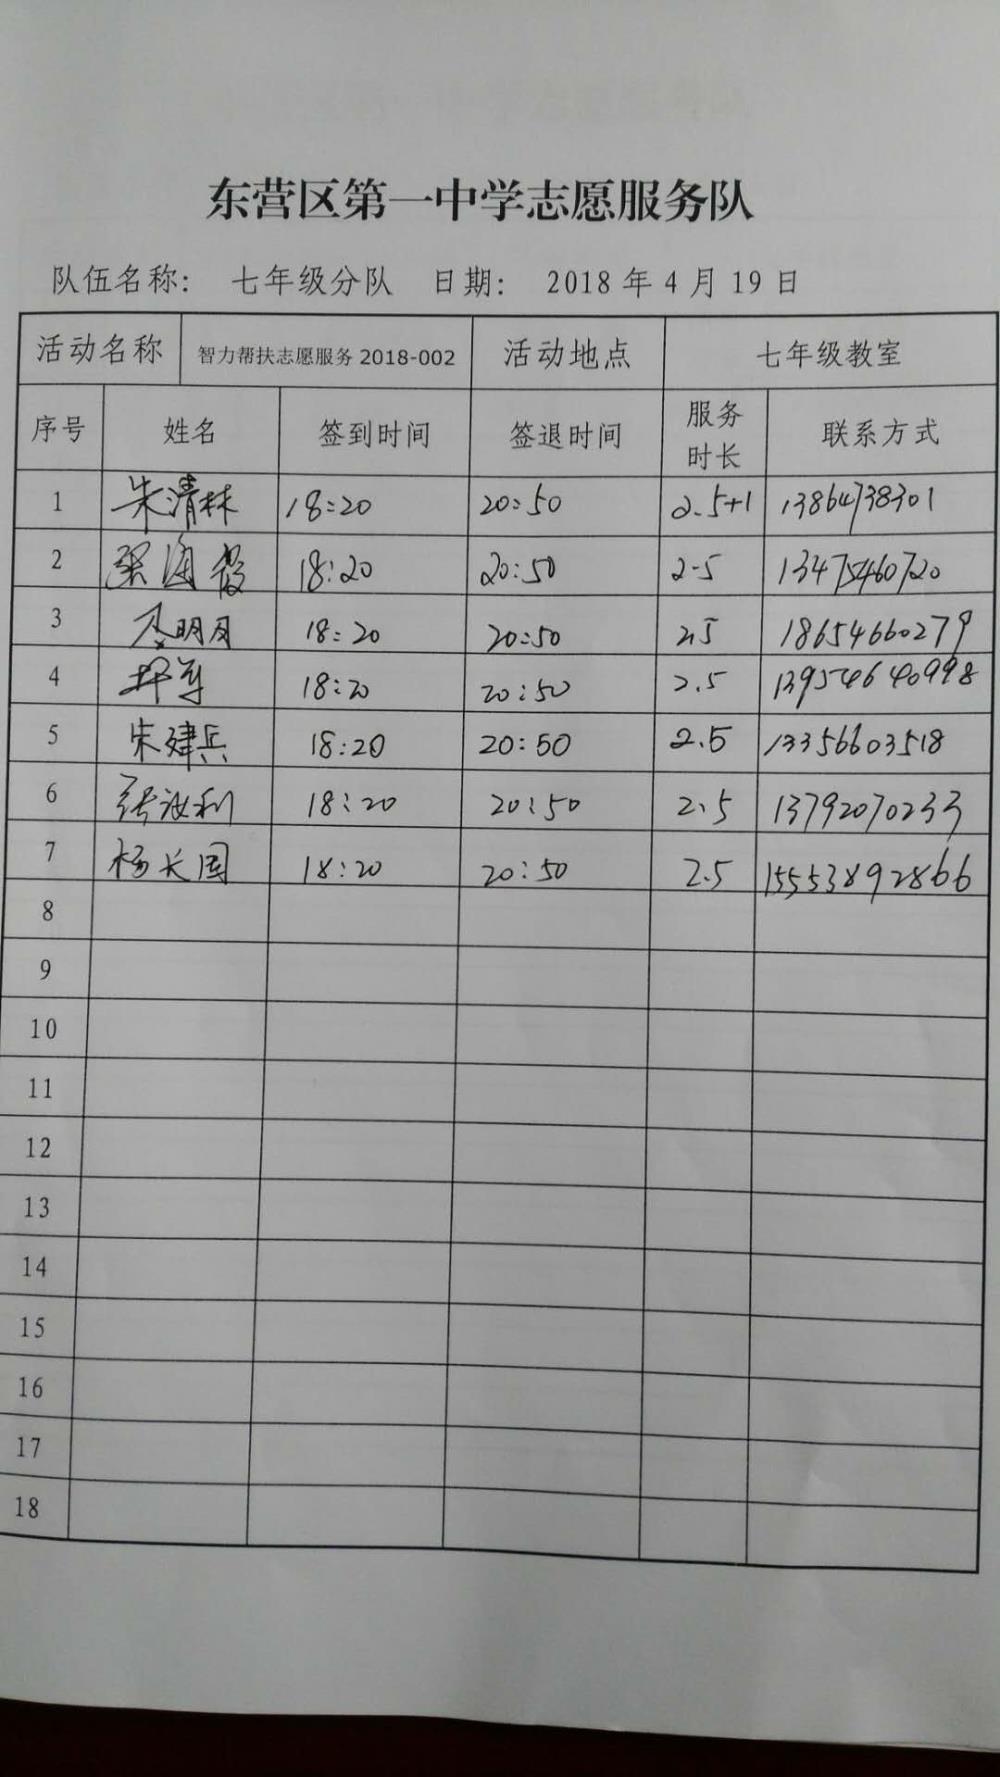 东营区第一中学志愿服务队
队伍名称： 七年级分队 日期： 2018 年 4 月 19 日
活动名称 智力帮扶志愿服务 2018-002 活动地点 七年级教室
序号 姓名 签到时间 签退时间 服务时长 联系方式
1 朱清林 18:20 20:50 2.5+1 13864738301
2 梁海霞 18:20 20:50 2.5 13475460720
3 明月 18:20 20:50 2.5 18654660279
4 18:20 20:50 2.5 13954640998
5 宋建兵 18:20 20:50 2.5 13356603518
6 张汝利 18:20 20:50 2.5 13792070233
7 杨长国 18:20 20:50 2.5 15553892866
8
9
10
11
12
13
14
15
16
17
18